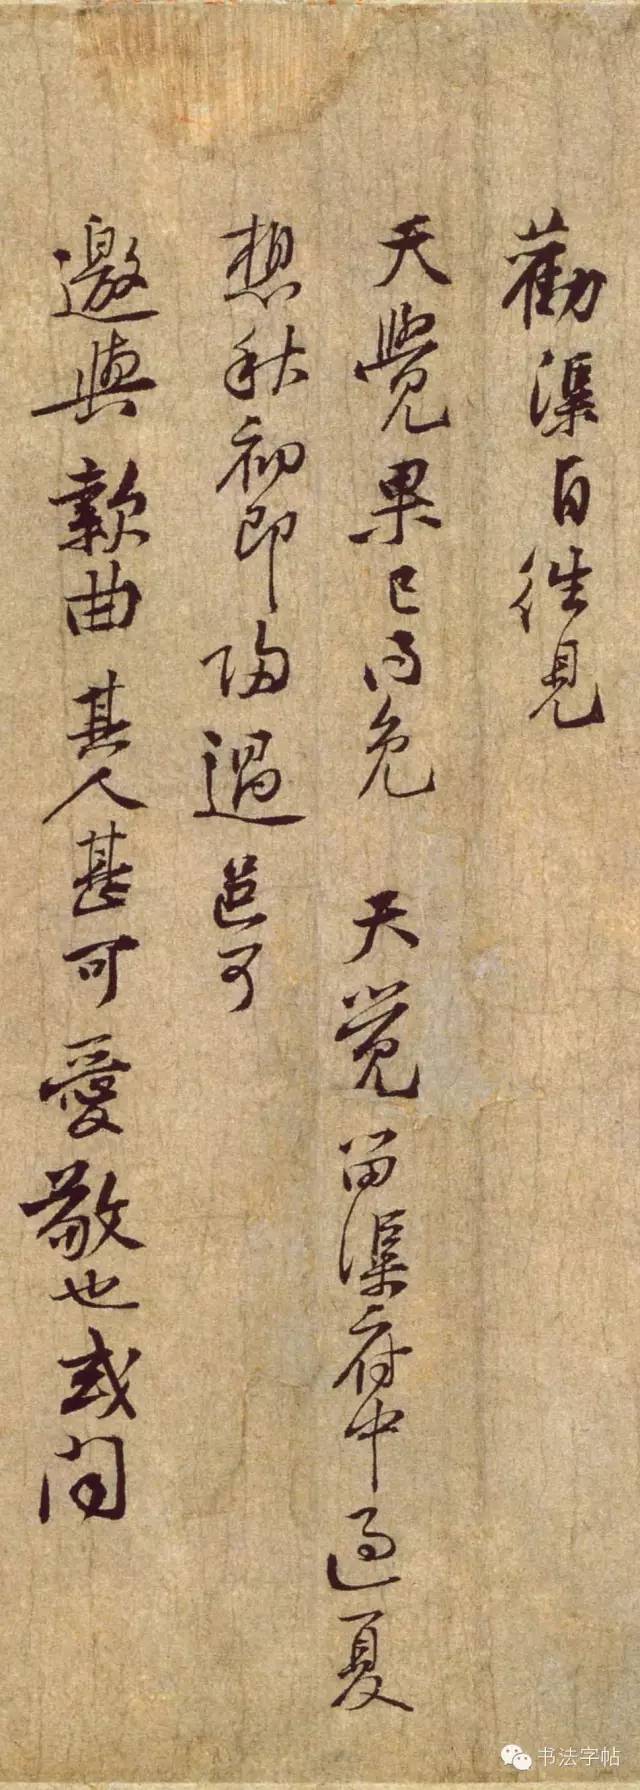 勸渠自往見
天覺果已得免 天覺留渠府中過夏
想秋初即歸過邑可
邀與款曲其人甚可愛敬也或問
书法字帖